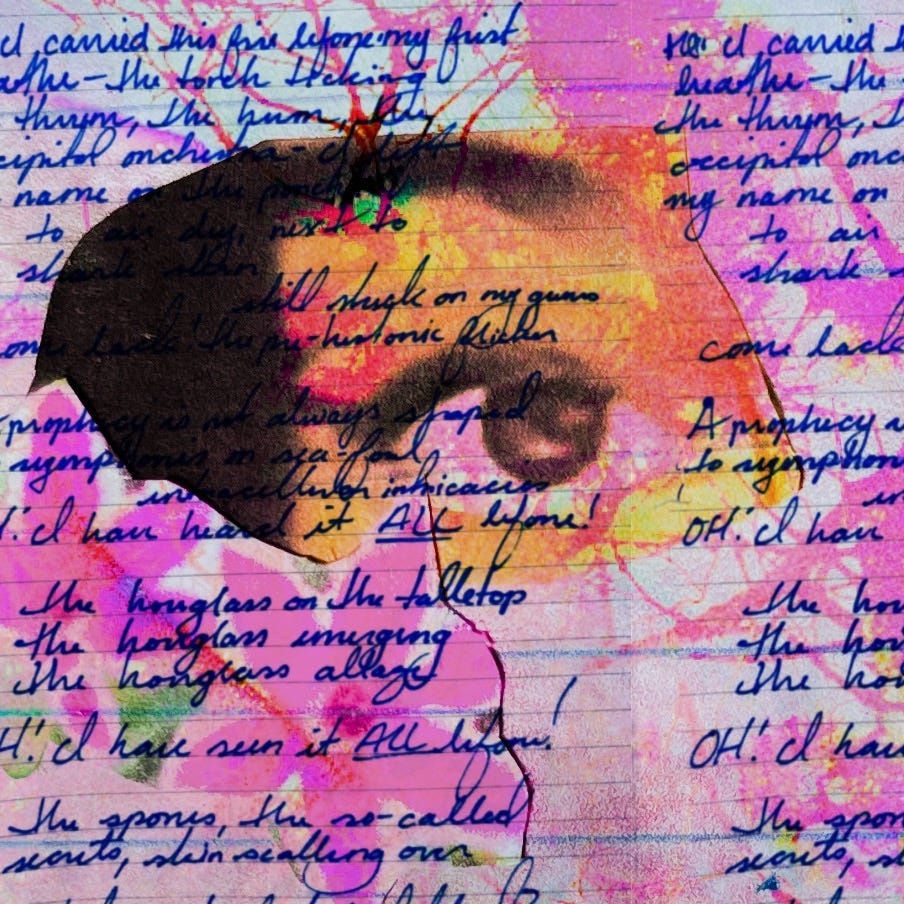 I carried this fire before my first
breathe - the torch ticking
the thrum, the hum, the
occipital orchestra - I left
my name on the porch
to air dry, next to
shark
still stuck on my gums
come back! the pre-historic flicker
A prophecy is not always shaped
to symphonies in sea-foul
intracellular intricacies
OH! I have heard it ALL before!
The hourglass on the tabletop
the hourglass emerging
The hourglass ablaze
OH! I have seen it ALL before!
The spores, the so-called
secrets, skin scalling over
I carried
breathe - the
the thrum,
occipital
my name on
to air
shark
come back
A prophecy
to symphon
OH! I have
The hou
the hou
The hou
OH! I hav
The spor
secrets,